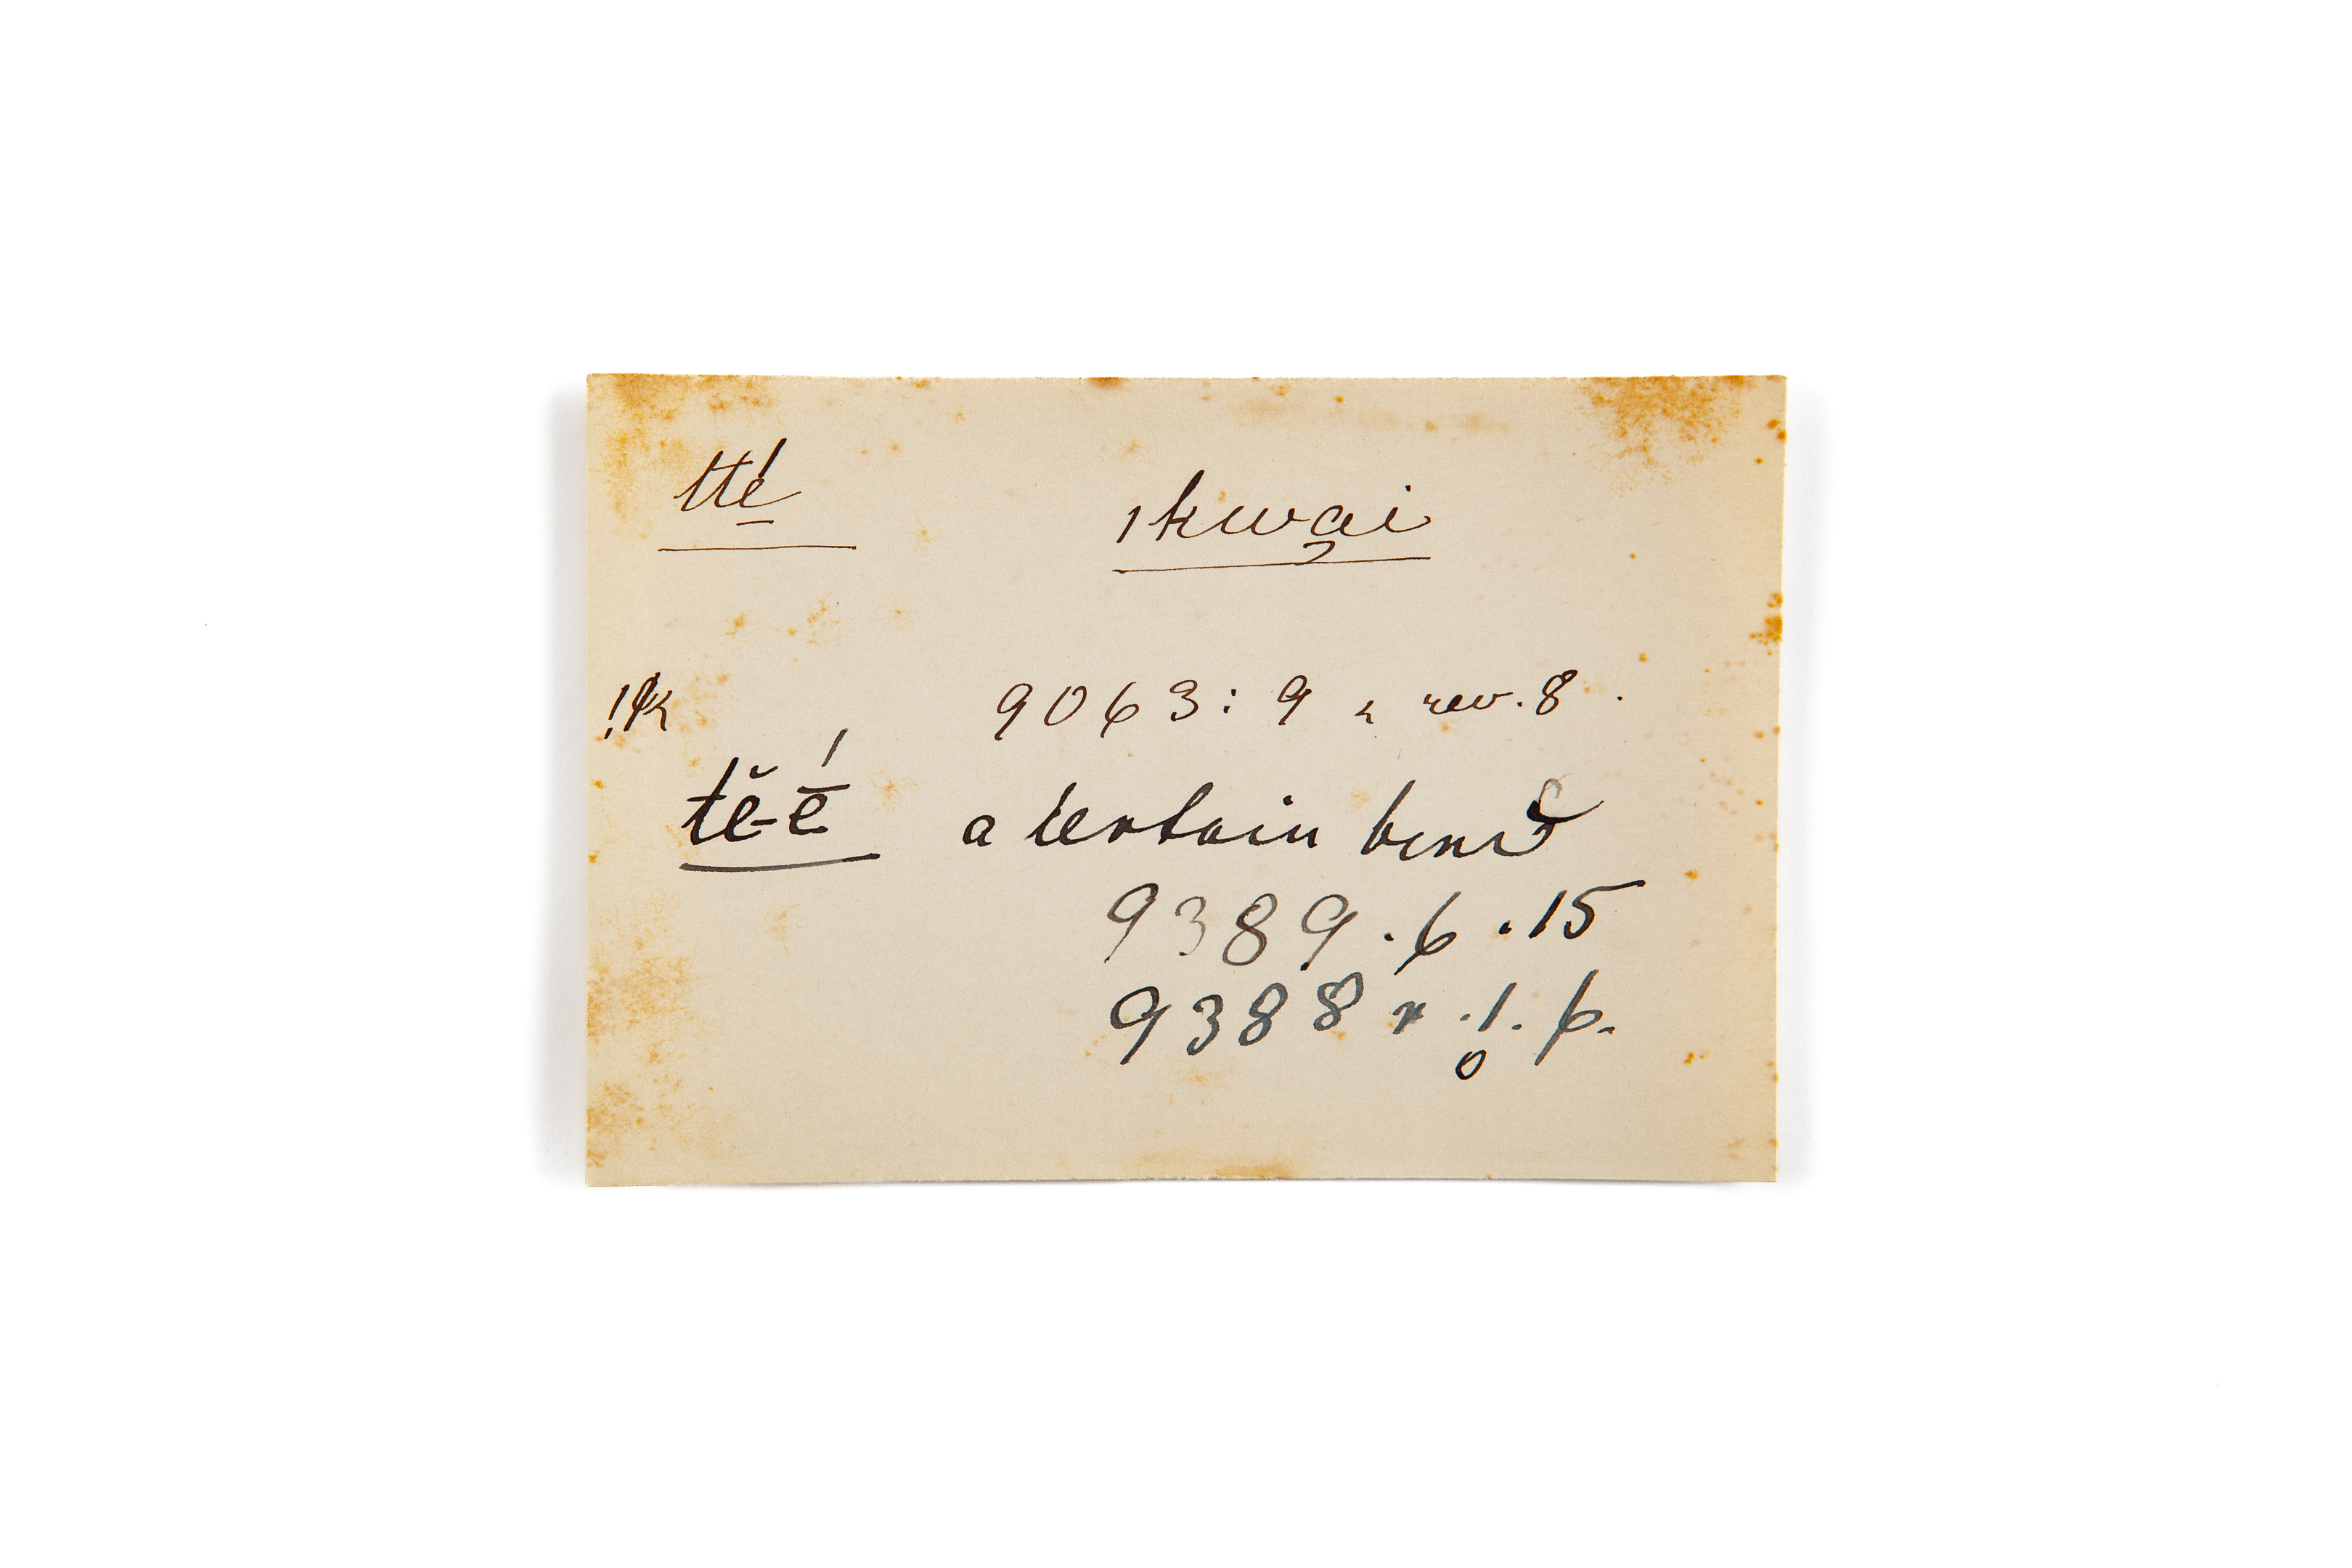 tté ıkwai
9063:9 & rev. 8.
!k
tĕ-é̄ a certain bird
9389.6.15
9388 r .1. 6.
0